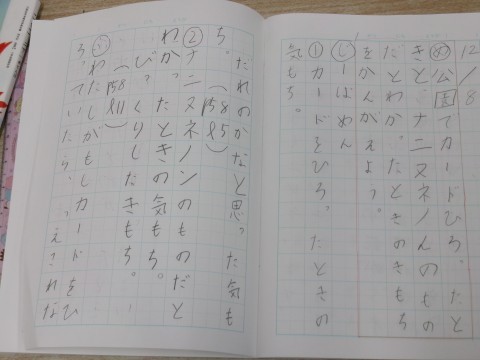 12/8
め 公園でカードひろった
きとナニヌーネノんのもの
だとわかったときのきもち
をかんがえよう。
じーばめん
①カードをひろったときの
気もち。
だれのかなと思った気も
ち。(P58 l5)
②ナニヌネノンのものだと
わかったときの気もち。
びっくりしたきもち。
(P58 l11)
わたしがもしカードをひ
ろっていたら、
えされな